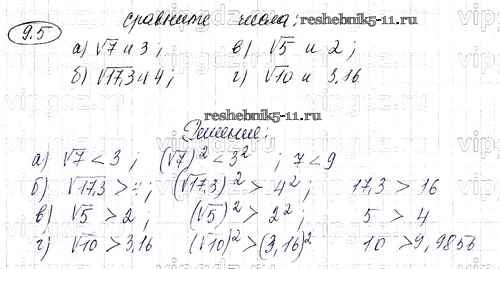 9.5 Сравните числа: reshebnik5-11.ru
а) √7 и 3; в) √5 и 2;
б) √17,3 и 4; г) √10 и 3,16
reshebnik5-11.ru
Решение:
а) √7 < 3; (√7)² < 3²; 7 < 9
б) √17,3 > ; (√17,3)² > 4²; 17,3 > 16
в) √5 > 2; (√5)² > 2²; 5 > 4
г) √10 > 3,16 (√10)² > (3,16)² 10 > 9,9856